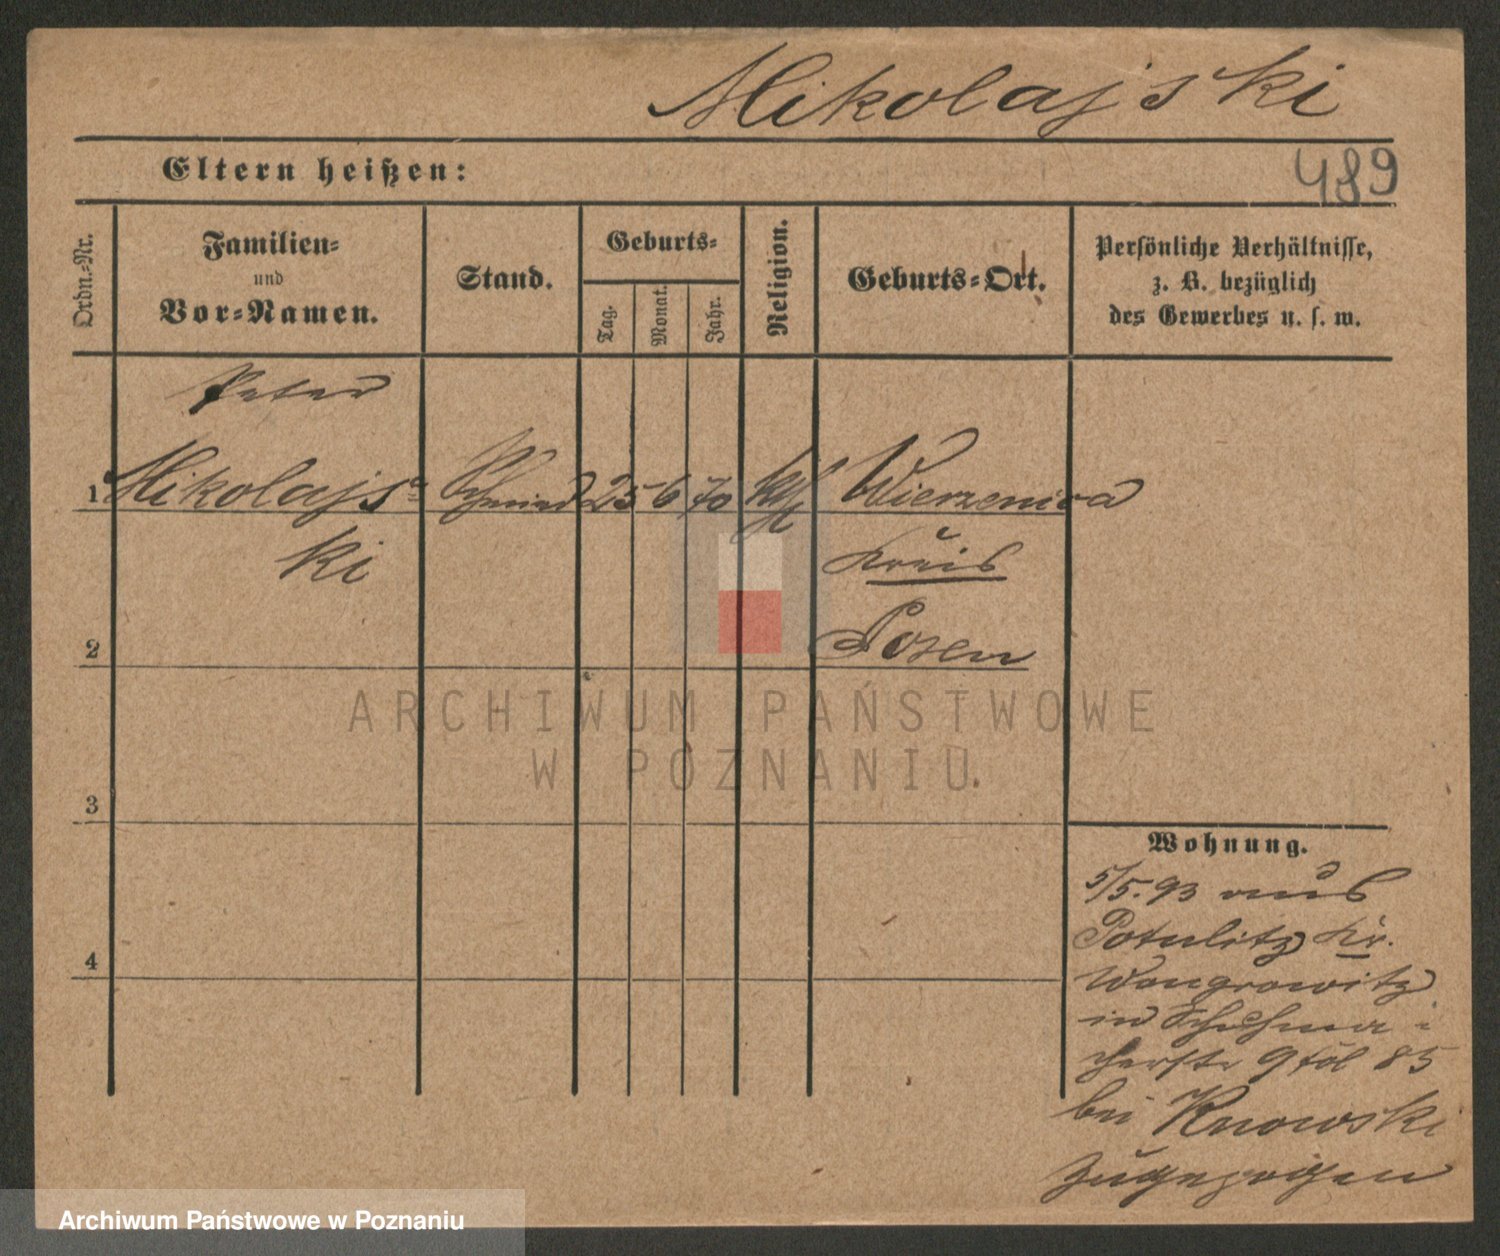 Mikolajski
Eltern heißen:
489
Ordn.-Nr.
Familien-
und
Vor-Namen.
Stand.
Geburts-
Tag.
Monat.
Jahr.
Religion.
Geburts-Ort.
Persönliche Verhältnisse,
z. B. bezüglich
des Gewerbes u. s. w.
Peter
1 Mikolajs- Schmied 25 6 70 kth Wierzenica
ki Kreis
2 Posen
ARCHIWUM PAŃSTWOWE
W POZNANIU
3
Wohnung.
5/5.93 aus
Potulitz Kr.
4 Wongrowitz
in Schuhma-
cherstr 9 fol 85
bei Knowski
zugezogen
Archiwum Państwowe w Poznaniu